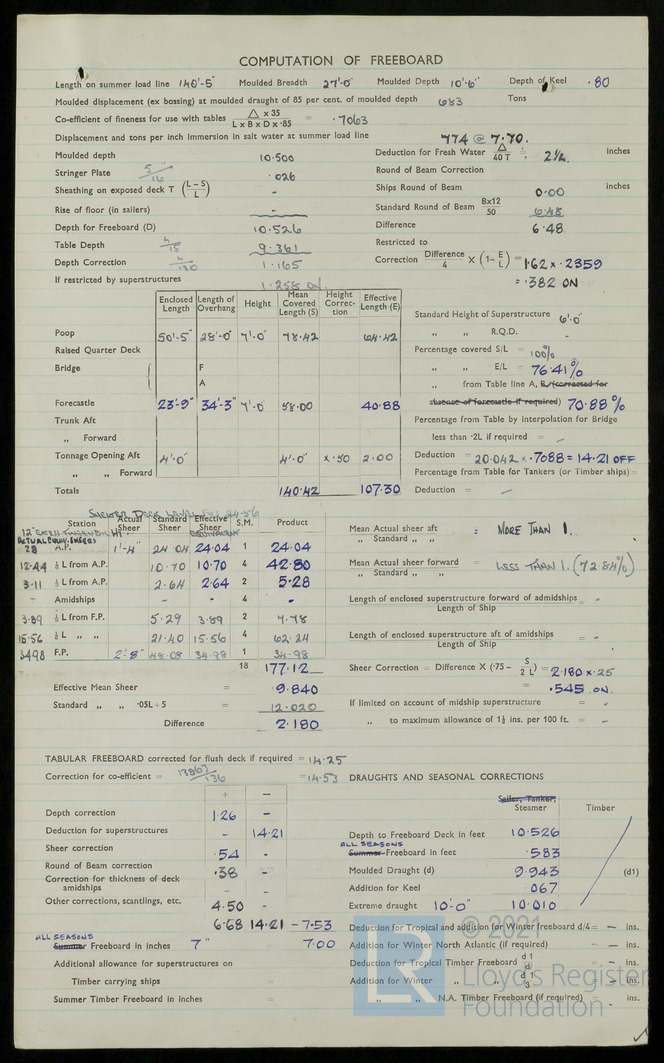 COMPUTATION OF FREEBOARD
Length on summer load line 140'-5" Moulded Breadth 27'-0" Moulded Depth 10'-6" Depth of Keel .80
Moulded displacement (ex bossing) at moulded draught of 85 per cent. of moulded depth 683 Tons
Co-efficient of fineness for use with tables △ x 35 / L x B x D x .85 = .7063
Displacement and tons per inch immersion in salt water at summer load line 774 @ 7.70.
Moulded depth 10.500
Deduction for Fresh Water △ / 40 T = 2½ inches
Stringer Plate 5/16 .026
Round of Beam Correction
Sheathing on exposed deck T (L-S / L) -
Ships Round of Beam 0.00 inches
Rise of floor (in sailers) -
Standard Round of Beam Bx12 / 50 6.48
Depth for Freeboard (D) 10.526
Difference 6.48
Table Depth L/15 9.361
Restricted to
Depth Correction L/130 1.165
Correction Difference / 4 X (1- E / L) = 1.62 x .2359
If restricted by superstructures 1.258 ON.
= .382 ON
Enclosed Length Length of Overhang Height Mean Covered Length (S) Height Correction Effective Length (E)
Standard Height of Superstructure 6'.0"
Poop 50'-5" 28'-0" 7'-0" 78.42 64.42
" " R.Q.D. -
Raised Quarter Deck
Percentage covered S/L = 100%
Bridge F
" " E/L = 76.41%
A
" from Table line A, B, (corrected for
Forecastle 23'-9" 34'-3" 7'-0" 58.00 40.88
absence of forecastle if required) 70.88%
Trunk Aft
Percentage from Table by interpolation for Bridge
" Forward
less than .2L if required = -
Tonnage Opening Aft 4'-0" 4'-0" x.50 2.00
Deduction = 20.042 x .7088 = 14.21 OFF
" " Forward
Percentage from Table for Tankers (or Timber ships) =
Totals 140.42 107.30
Deduction = -
Station Actual Sheer Standard Sheer Effective Sheer S.M. Product
28 A.P. 1'-4" 24.04 24.04 1 24.04
Mean Actual sheer aft / " Standard " " = MORE THAN 1.
12.44 ⅙ L from A.P. 10.70 10.70 4 42.80
Mean Actual sheer forward / " Standard " " = LESS THAN 1. (72.84%)
3.11 ⅓ L from A.P. 2.64 2.64 2 5.28
- Amidships - - 4 -
Length of enclosed superstructure forward of admidships / Length of Ship = -
3.89 ⅓ L from F.P. 5.29 3.89 2 7.78
15.56 ⅙ L " " 21.40 15.56 4 62.24
Length of enclosed superstructure aft of amidships / Length of Ship = -
34.98 F.P. 2'8" 48.08 34.98 1 34.98
18 177.12
Sheer Correction = Difference X (.75 - S / 2 L) = 2.180 x .25
Effective Mean Sheer = 9.840
= .545 ON.
Standard " " .05L+5 = 12.020
If limited on account of midship superstructure = -
Difference 2.180
" to maximum allowance of 1½ ins. per 100 ft. = -
TABULAR FREEBOARD corrected for flush deck if required = 14.25
Correction for co-efficient = 1.3863 / 1.36 = 14.53
DRAUGHTS AND SEASONAL CORRECTIONS
+ -
Sailer, Tanker, Steamer Timber
Depth correction 1.26
Deduction for superstructures - 14.21
Depth to Freeboard Deck in feet 10.526
Sheer correction .54 -
ALL SEASONS
Summer Freeboard in feet .583
Round of Beam correction .38 -
Moulded Draught (d) 9.943 (d1)
Correction for thickness of deck amidships - -
Addition for Keel .067
Other corrections, scantlings, etc. 4.50 -
Extreme draught 10'-0" 10.010
6.68 14.21 - 7.53
Deduction for Tropical and addition for Winter freeboard d/4 = - ins.
ALL SEASONS
Summer Freeboard in inches 7" 7.00
Addition for Winter North Atlantic (if required) = - ins.
Additional allowance for superstructures on
Deduction for Tropical Timber Freeboard d 1 / 4 = - ins.
Timber carrying ships =
Addition for Winter " " d 1 / 3 = - ins.
Summer Timber Freeboard in inches =
" " N.A. Timber Freeboard (if required) = - ins.
LR © 2021
Lloyd's Register
Foundation